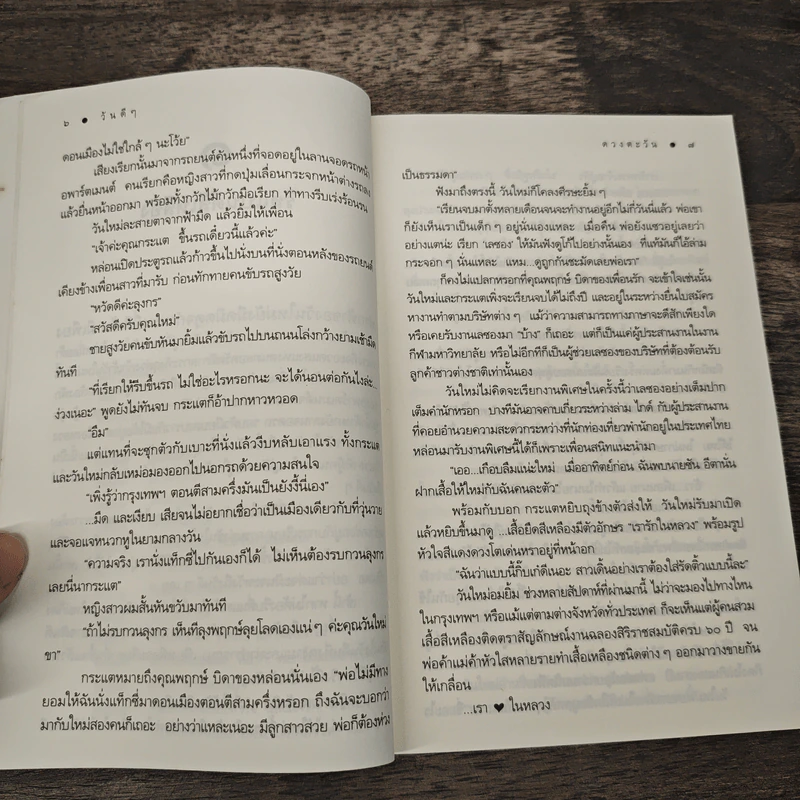 ๖ ● วันดีๆ
ดอนเมืองไม่ใช่ใกล้ ๆ นะโว้ย”
เสียงเรียกนั้นมาจากรถยนต์คันหนึ่งที่จอดอยู่ในลานจอดรถหน้า
อพาร์ตเมนต์ คนเรียกคือหญิงสาวที่กดปุ่มเลื่อนกระจกหน้าต่างรถลง
แล้วยื่นหน้าออกมา พร้อมทั้งกวักไม้กวักมือเรียก ท่าทางรีบเร่งร้อนรน
วันใหม่ละสายตาจากฟ้ามืด แล้วยิ้มให้เพื่อน
“เจ้าค่ะคุณกระแต ขึ้นรถเดี๋ยวนี้แล้วค่ะ”
หล่อนเปิดประตูรถแล้วก้าวขึ้นไปนั่งบนที่นั่งตอนหลังของรถยนต์
เคียงข้างเพื่อนสาวที่มารับ ก่อนทักทายคนขับรถสูงวัย
“หวัดดีค่ะลุงกร”
“สวัสดีครับคุณใหม่”
ชายสูงวัยคนขับหันมายิ้มแล้วขับรถไปบนถนนโล่งกว้างยามเช้ามืด
ทันที
“ที่เรียกให้รีบขึ้นรถ ไม่ใช่อะไรหรอกนะ จะได้นอนต่อกันไงล่ะ
ง่วงเนอะ” พูดยังไม่ทันจบ กระแตก็อ้าปากหาวหวอด
“อืม”
แต่แทนที่จะซุกตัวกับเบาะที่นั่งแล้วงีบหลับเอาแรง ทั้งกระแต
และวันใหม่กลับเหม่อมองออกไปนอกรถด้วยความสนใจ
“เพิ่งรู้ว่ากรุงเทพฯ ตอนตีสามครึ่งมันเป็นยังงี้นี่เอง”
...มืด และเงียบ เสียจนไม่อยากเชื่อว่าเป็นเมืองเดียวกับที่วุ่นวาย
และจอแจหนวกหูในยามกลางวัน
“ความจริง เรานั่งแท็กซี่ไปกันเองก็ได้ ไม่เห็นต้องรบกวนลุงกร
เลยนี่นากระแต”
หญิงสาวผมสั้นหันขวับมาทันที
“ถ้าไม่รบกวนลุงกร เห็นทีลุงพฤกษ์ลุยโลดเองแน่ๆ ค่ะคุณวันใหม่
ขา”
กระแตหมายถึงคุณพฤกษ์ บิดาของหล่อนนั่นเอง “พ่อไม่มีทาง
ยอมให้ฉันนั่งแท็กซี่มาดอนเมืองตอนตีสามครึ่งหรอก ถึงฉันจะบอกว่า
มากับใหม่สองคนก็เถอะ อย่างว่าแหละเนอะ มีลูกสาวสวย พ่อก็ต้องห่วง
ดวงตะวัน ● ๗
เป็นธรรมดา”
ฟังมาถึงตรงนี้ วันใหม่ก็โคลงศีรษะยิ้ม ๆ
“เรียนจบมาตั้งหลายเดือนจนจะทำงานอยู่อีกไม่กี่วันนี่แล้ว พ่อเขา
ก็ยังเห็นเราเป็นเด็ก ๆ อยู่นั่นเองแหละ เมื่อคืน พ่อยังแซวอยู่เลยว่า
อย่างแดน่ะ เรียก ‘เลซอง’ ให้มันฟังดูโก้ไปอย่างนั้นเอง ที่แท้มันก็ไอ้ล่าม
กระจอก ๆ นั่นแหละ แหม...ดูถูกกันชะมัดเลยพ่อเรา”
ก็คงไม่แปลกหรอกที่คุณพฤกษ์ บิดาของเพื่อนรัก จะเข้าใจเช่นนั้น
วันใหม่และกระแตเพิ่งจะเรียนจบได้ไม่ถึงปี และอยู่ในระหว่างยื่นใบสมัคร
หางานทำตามบริษัทต่าง ๆ แม้ว่าความสามารถทางภาษาจะดีสักเพียงใด
หรือเคยรับงานเลซองมา “บ้าง” ก็เถอะ แต่ก็เป็นแค่ผู้ประสานงานในงาน
กีฬามหาวิทยาลัย หรือไม่อีกทีก็เป็นผู้ช่วยเลซองของบริษัทที่ต้องต้อนรับ
ลูกค้าชาวต่างชาติเท่านั้นเอง
วันใหม่ไม่คิดจะเรียกงานพิเศษในครั้งนี้ว่าเลซองอย่างเต็มปาก
เต็มคำนักหรอก บางทีมันอาจคาบเกี่ยวระหว่างล่าม ไกด์ กับผู้ประสานงาน
ที่คอยอำนวยความสะดวกระหว่างที่นักท่องเที่ยวพำนักอยู่ในประเทศไทย
หล่อนมารับงานพิเศษนี้ได้ก็เพราะเพื่อนสนิทแนะนำมา
“เออ...เกือบลืมแน่ะใหม่ เมื่ออาทิตย์ก่อน ฉันพบนายซัน อีตานั่น
ฝากเสื้อให้ใหม่กับฉันคนละตัว”
พร้อมกับบอก กระแตหยิบถุงข้างตัวส่งให้ วันใหม่รับมาเปิด
แล้วหยิบขึ้นมาดู ...เสื้อยืดสีเหลืองมีตัวอักษร “เรารักในหลวง” พร้อมรูป
หัวใจสีแดงดวงโตเด่นหราอยู่ที่หน้าอก
“ฉันว่าแบบนี้กิ๊บเก๋ดีเนอะ สาวเดิ้นอย่างเราต้องใส่รัดติ้วแบบนี้ละ”
วันใหม่อมยิ้ม ช่วงหลายสัปดาห์ที่ผ่านมานี้ ไม่ว่าจะมองไปทางไหน
ในกรุงเทพฯ หรือแม้แต่ตามต่างจังหวัดทั่วประเทศ ก็จะเห็นแต่ผู้คนสวม
เสื้อสีเหลืองติดตราสัญลักษณ์งานฉลองสิริราชสมบัติครบ ๖๐ ปี จน
พ่อค้าแม่ค้าหัวใสหลายรายทำเสื้อเหลืองชนิดต่าง ๆ ออกมาวางขายกัน
ให้เกลื่อน
...เรา ♥ ในหลวง